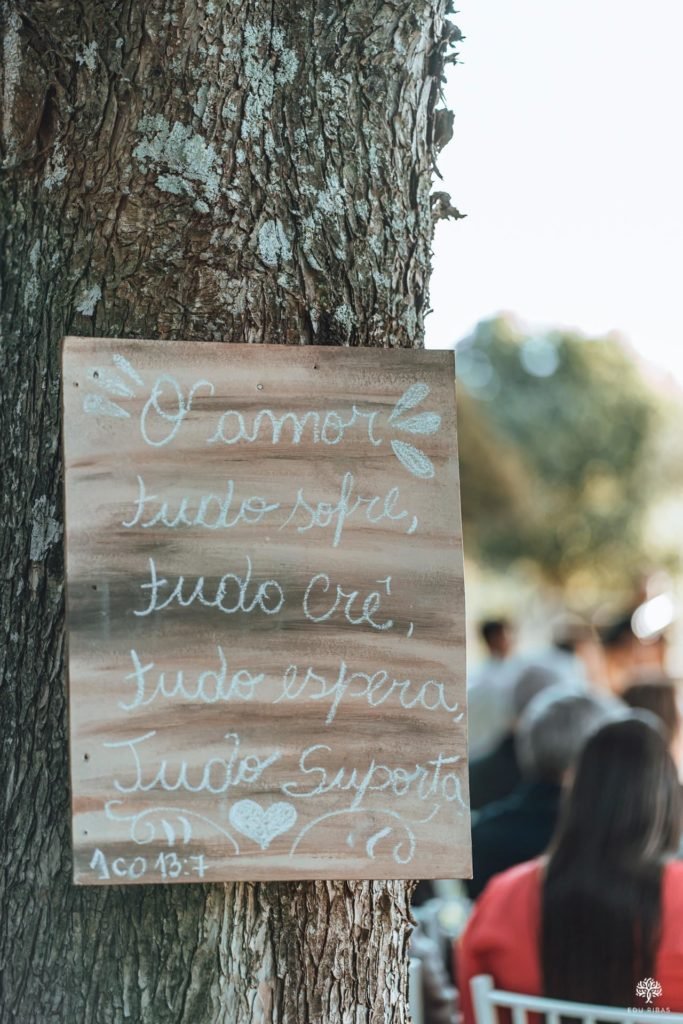 O amor
tudo sofre,
tudo crê,
tudo espera,
Tudo Suporta
1CO 13:7
EDU RIBAS